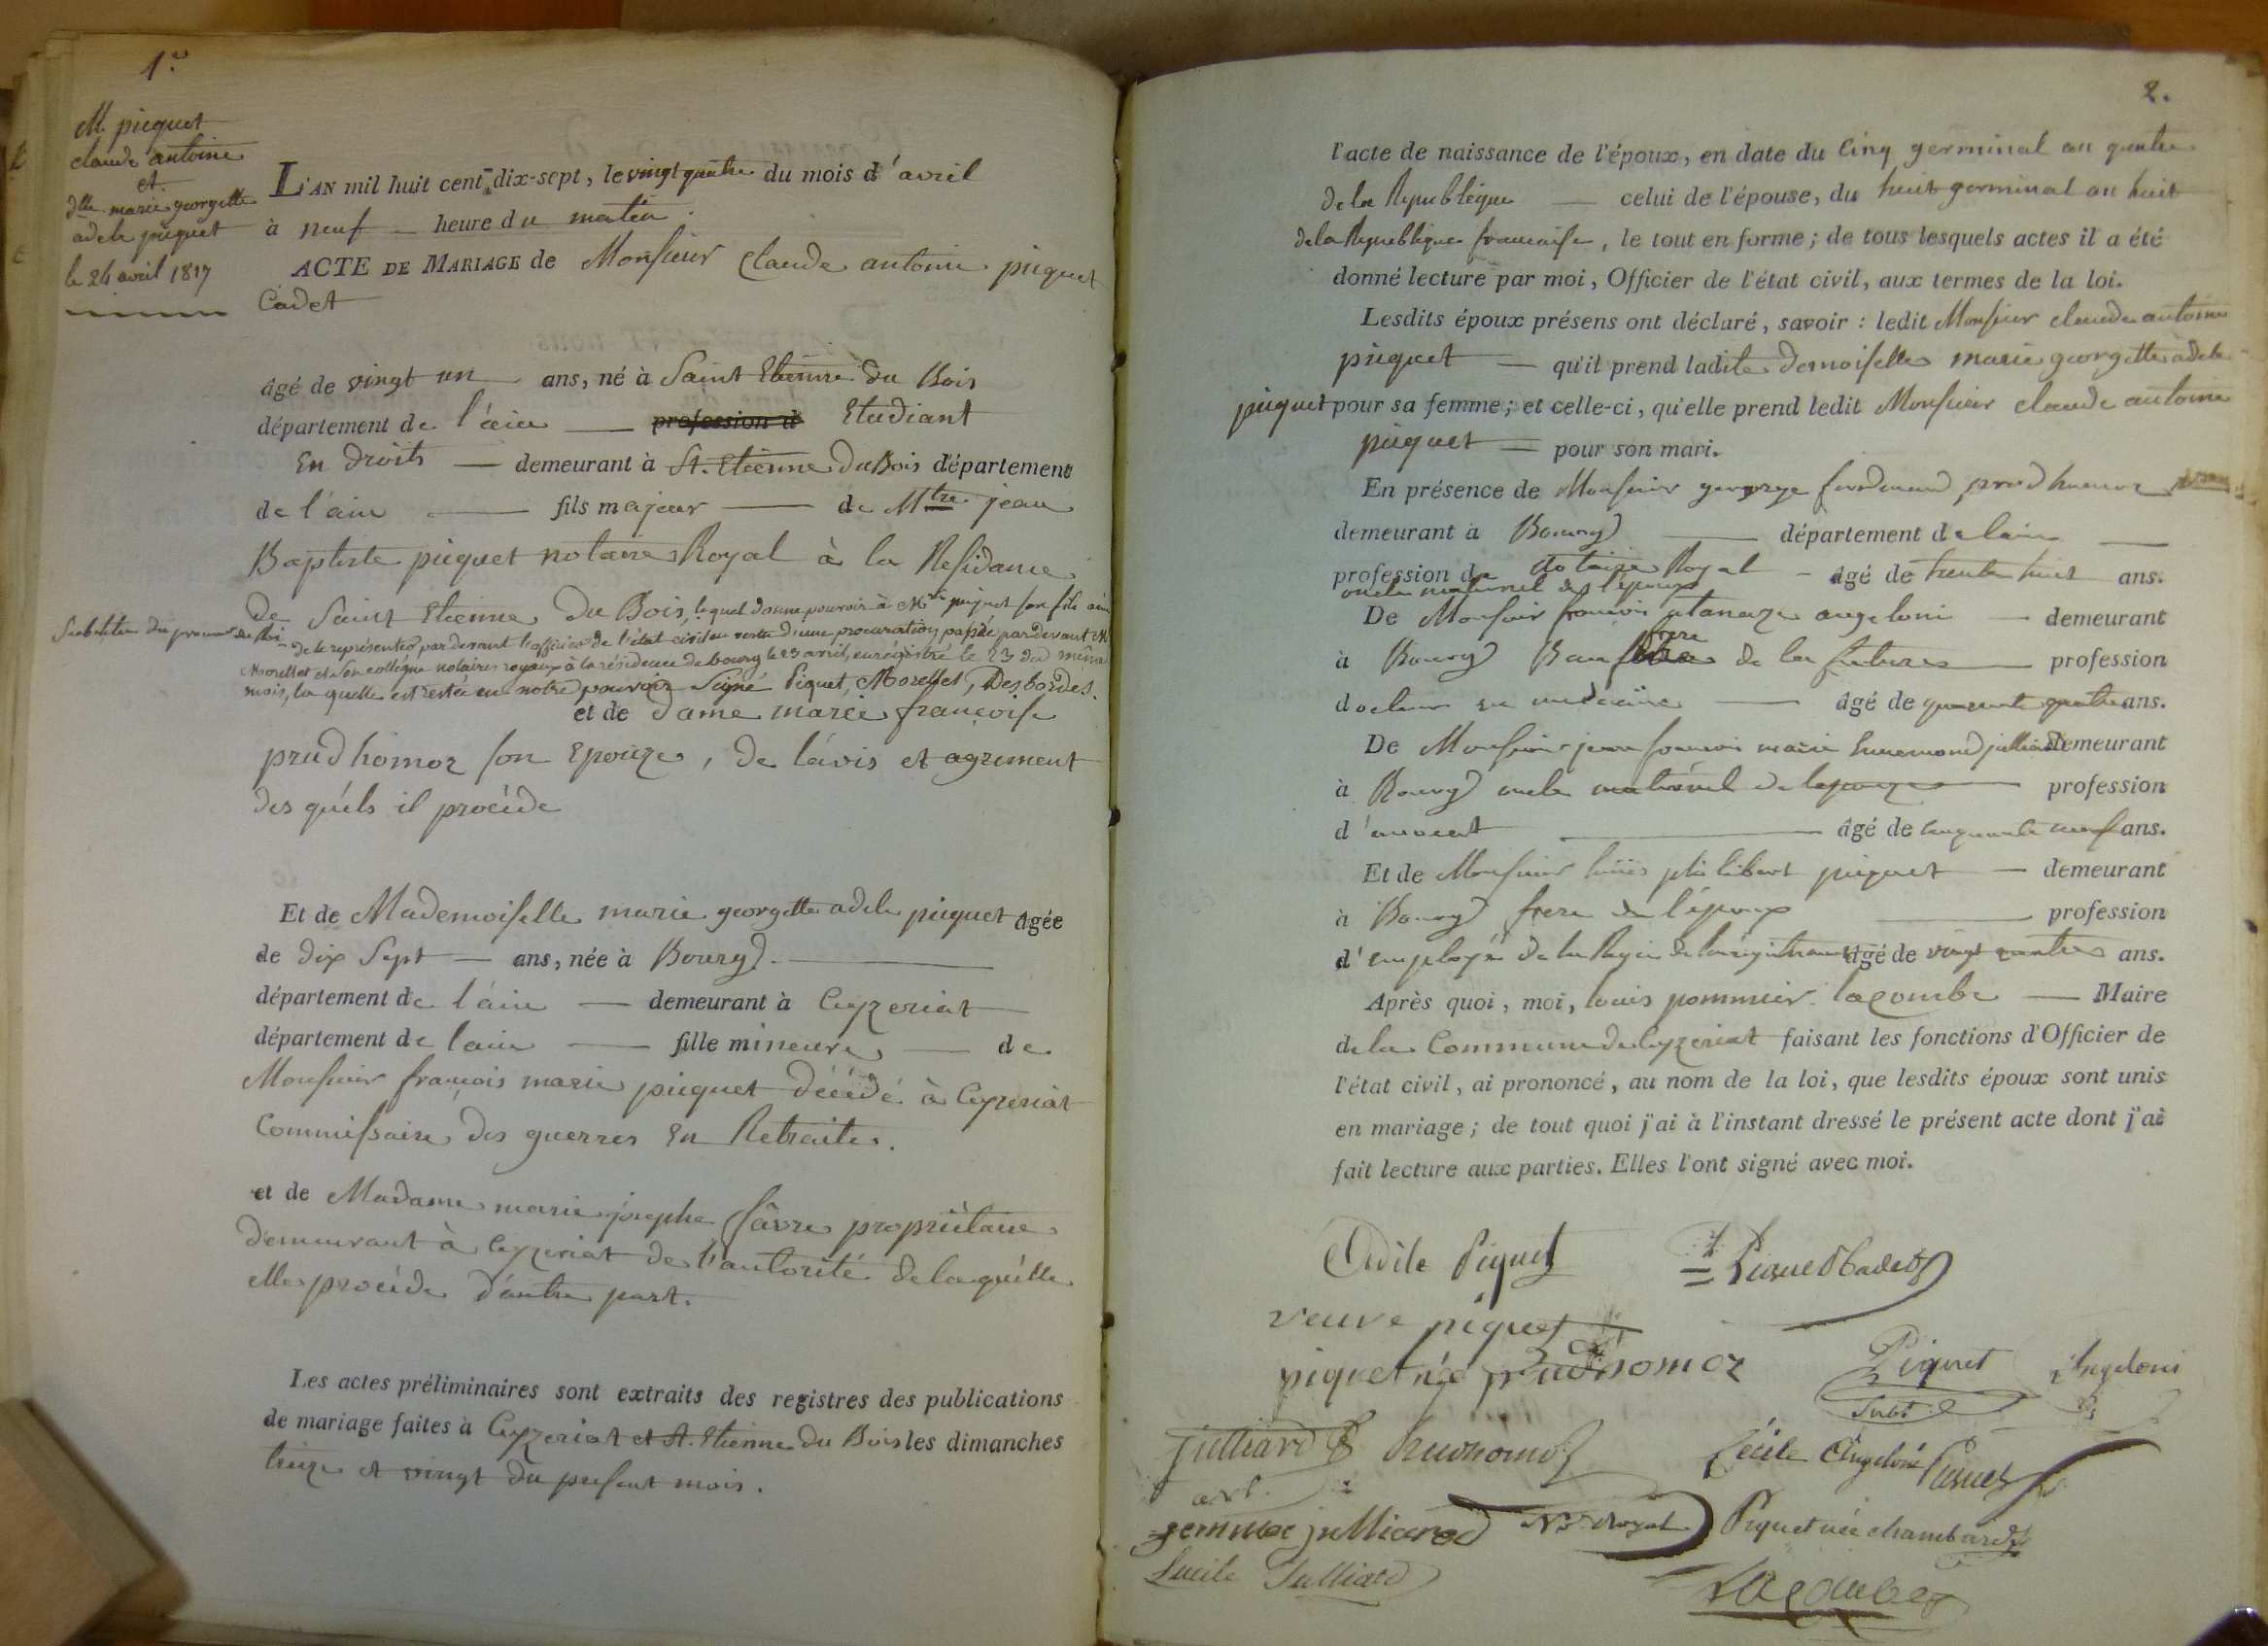 1.º
M. piquet
claude antoine
et
dlle marie georgette
adele piquet
le 24 avril 1817
L'AN mil huit cent dix-sept, le vingt quatre du mois d'avril
à neuf heure du matin.
ACTE DE MARIAGE de Monsieur Claude antoine piquet
Cadet
âgé de vingt un ans, né à Saint Etienne du Bois
département de l'ain profession d Etudiant
En droits demeurant à St. Etienne du Bois département
de l'ain fils majeur de Mtre jean
Baptiste piquet notaire Royal à la Residance
de Saint Etienne du Bois, lequel donne pouvoir à Mr piquet son fils ainé
Substitut du procureur du Roi de le représenter par devant l'officier de l'état civil en vertu d'une procuration passée par devant Me
Morellet et son collègue notaires royaux à la résidence de bourg le 23 avril, enrégistré le 23 du même
mois, la quelle est restée en notre pouvoir Signé Piquet, Morellet, Desbordes.
et de Dame marie françoise
prudhomoz son Epouze, de l'avis et agrement
des quéls il procéde
Et de Mademoiselle marie georgette adele piquet âgée
de dix Sept ans, née à Bourg
département de l'ain demeurant à Ceyzeriat
département de l'ain fille mineure de
Monsieur françois marie piquet décédé à Ceyzeriat
Commissaire des guerres En Retraite.
et de Madame marie josephe favre propriétaire
demeurant à Ceyzeriat de l'autorité de laquélle
elle procéde d'autre part.
Les actes préliminaires sont extraits des registres des publications
de mariage faites à Ceyzeriat et St. Etienne du Bois les dimanches
treize et vingt du présent mois.
2.
l'acte de naissance de l'époux, en date du Cinq germinal an quatre
de la Republique celui de l'épouse, du huit germinal an huit
de la Republique francaise, le tout en forme; de tous lesquels actes il a été
donné lecture par moi, Officier de l'état civil, aux termes de la loi.
Lesdits époux présens ont déclaré, savoir : ledit Monsieur claude antoine
piquet qu'il prend ladite demoiselle marie georgette adele
piquet pour sa femme; et celle-ci, qu'elle prend ledit Monsieur claude antoine
piquet pour son mari.
En présence de Monsieur george ferdinand prudhomoz
demeurant à Bourg département de lain
profession de Notaire Royal âgé de trente huit ans.
oncle maternel de l'époux
De Monsieur francois angeloni demeurant
à Bourg Beau frere de la future profession
docteur en medecine âgé de quarante quatre ans.
De Monsieur jean francois marie julliard demeurant
à Bourg oncle maternel de lepouze profession
d'avocat âgé de cinquante neuf ans.
Et de Monsieur louis philibert piquet demeurant
à Bourg frere de l'époux profession
d'employé de la Regie de lenregistrement âgé de vingt quatre ans.
Après quoi, moi, louis pommier lacombe Maire
de la Commune de Ceyzeriat faisant les fonctions d'Officier de
l'état civil, ai prononcé, au nom de la loi, que lesdits époux sont unis
en mariage; de tout quoi j'ai à l'instant dressé le présent acte dont j'ai
fait lecture aux parties. Elles l'ont signé avec moi.
Adele Piquet Piquet Cadet
veuve piquet
piquet née prudhomoz Piquet Angeloni
Subt.
Julliard Prudhomoz Cécile Angeloni Piquet
avt.
femme julliard Nre Royal Piquet née chambard
Lucile Julliard
Lacombe